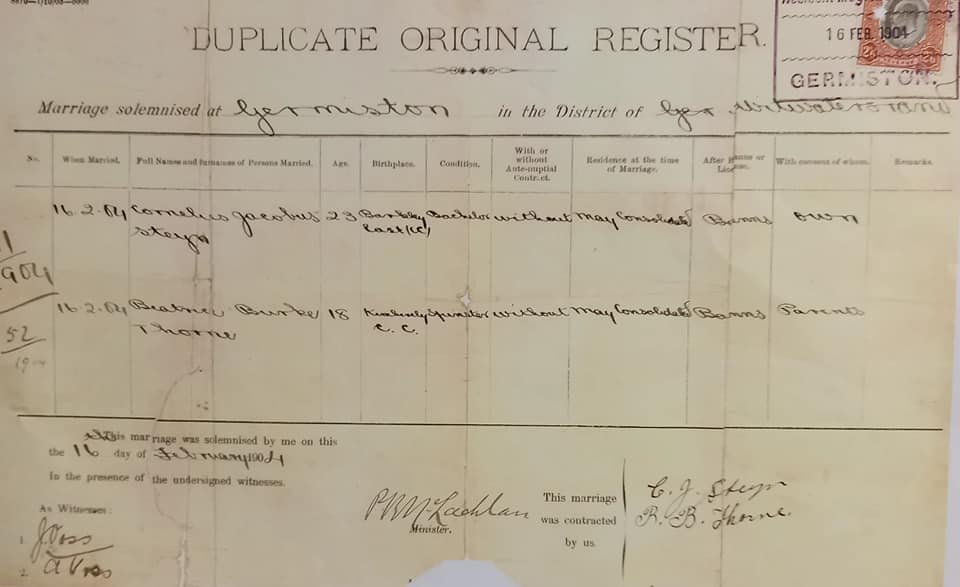 DUPLICATE ORIGINAL REGISTER.
16 FEB. 1904
GERMISTON.
Marriage solemnised at Germiston in the District of Witwatersrand
No. When Married. Full Names and Surnames of Persons Married. Age. Birthplace. Condition. With or without Ante-nuptial Contract. Residence at the time of Marriage. After Banns or License. With consent of whom. Remarks.
16.2.04 Cornelius Jacobus 23 Barkley Bachelor without May Consolidated Banns own
Steyn East (CC)
1904
16.2.04 Beatrice Burke 18 Kimberly Spinster without May Consolidated Banns Parents
Thorne C.C.
52
1904
This marriage was solemnised by me on this
the 16 day of February 1904
In the presence of the undersigned witnesses.
As Witnesses:
1 J Voss
2. A Voss
P B McLachlan
Minister.
This marriage
was contracted
by us.
C. J. Steyn
R. B. Thorne.